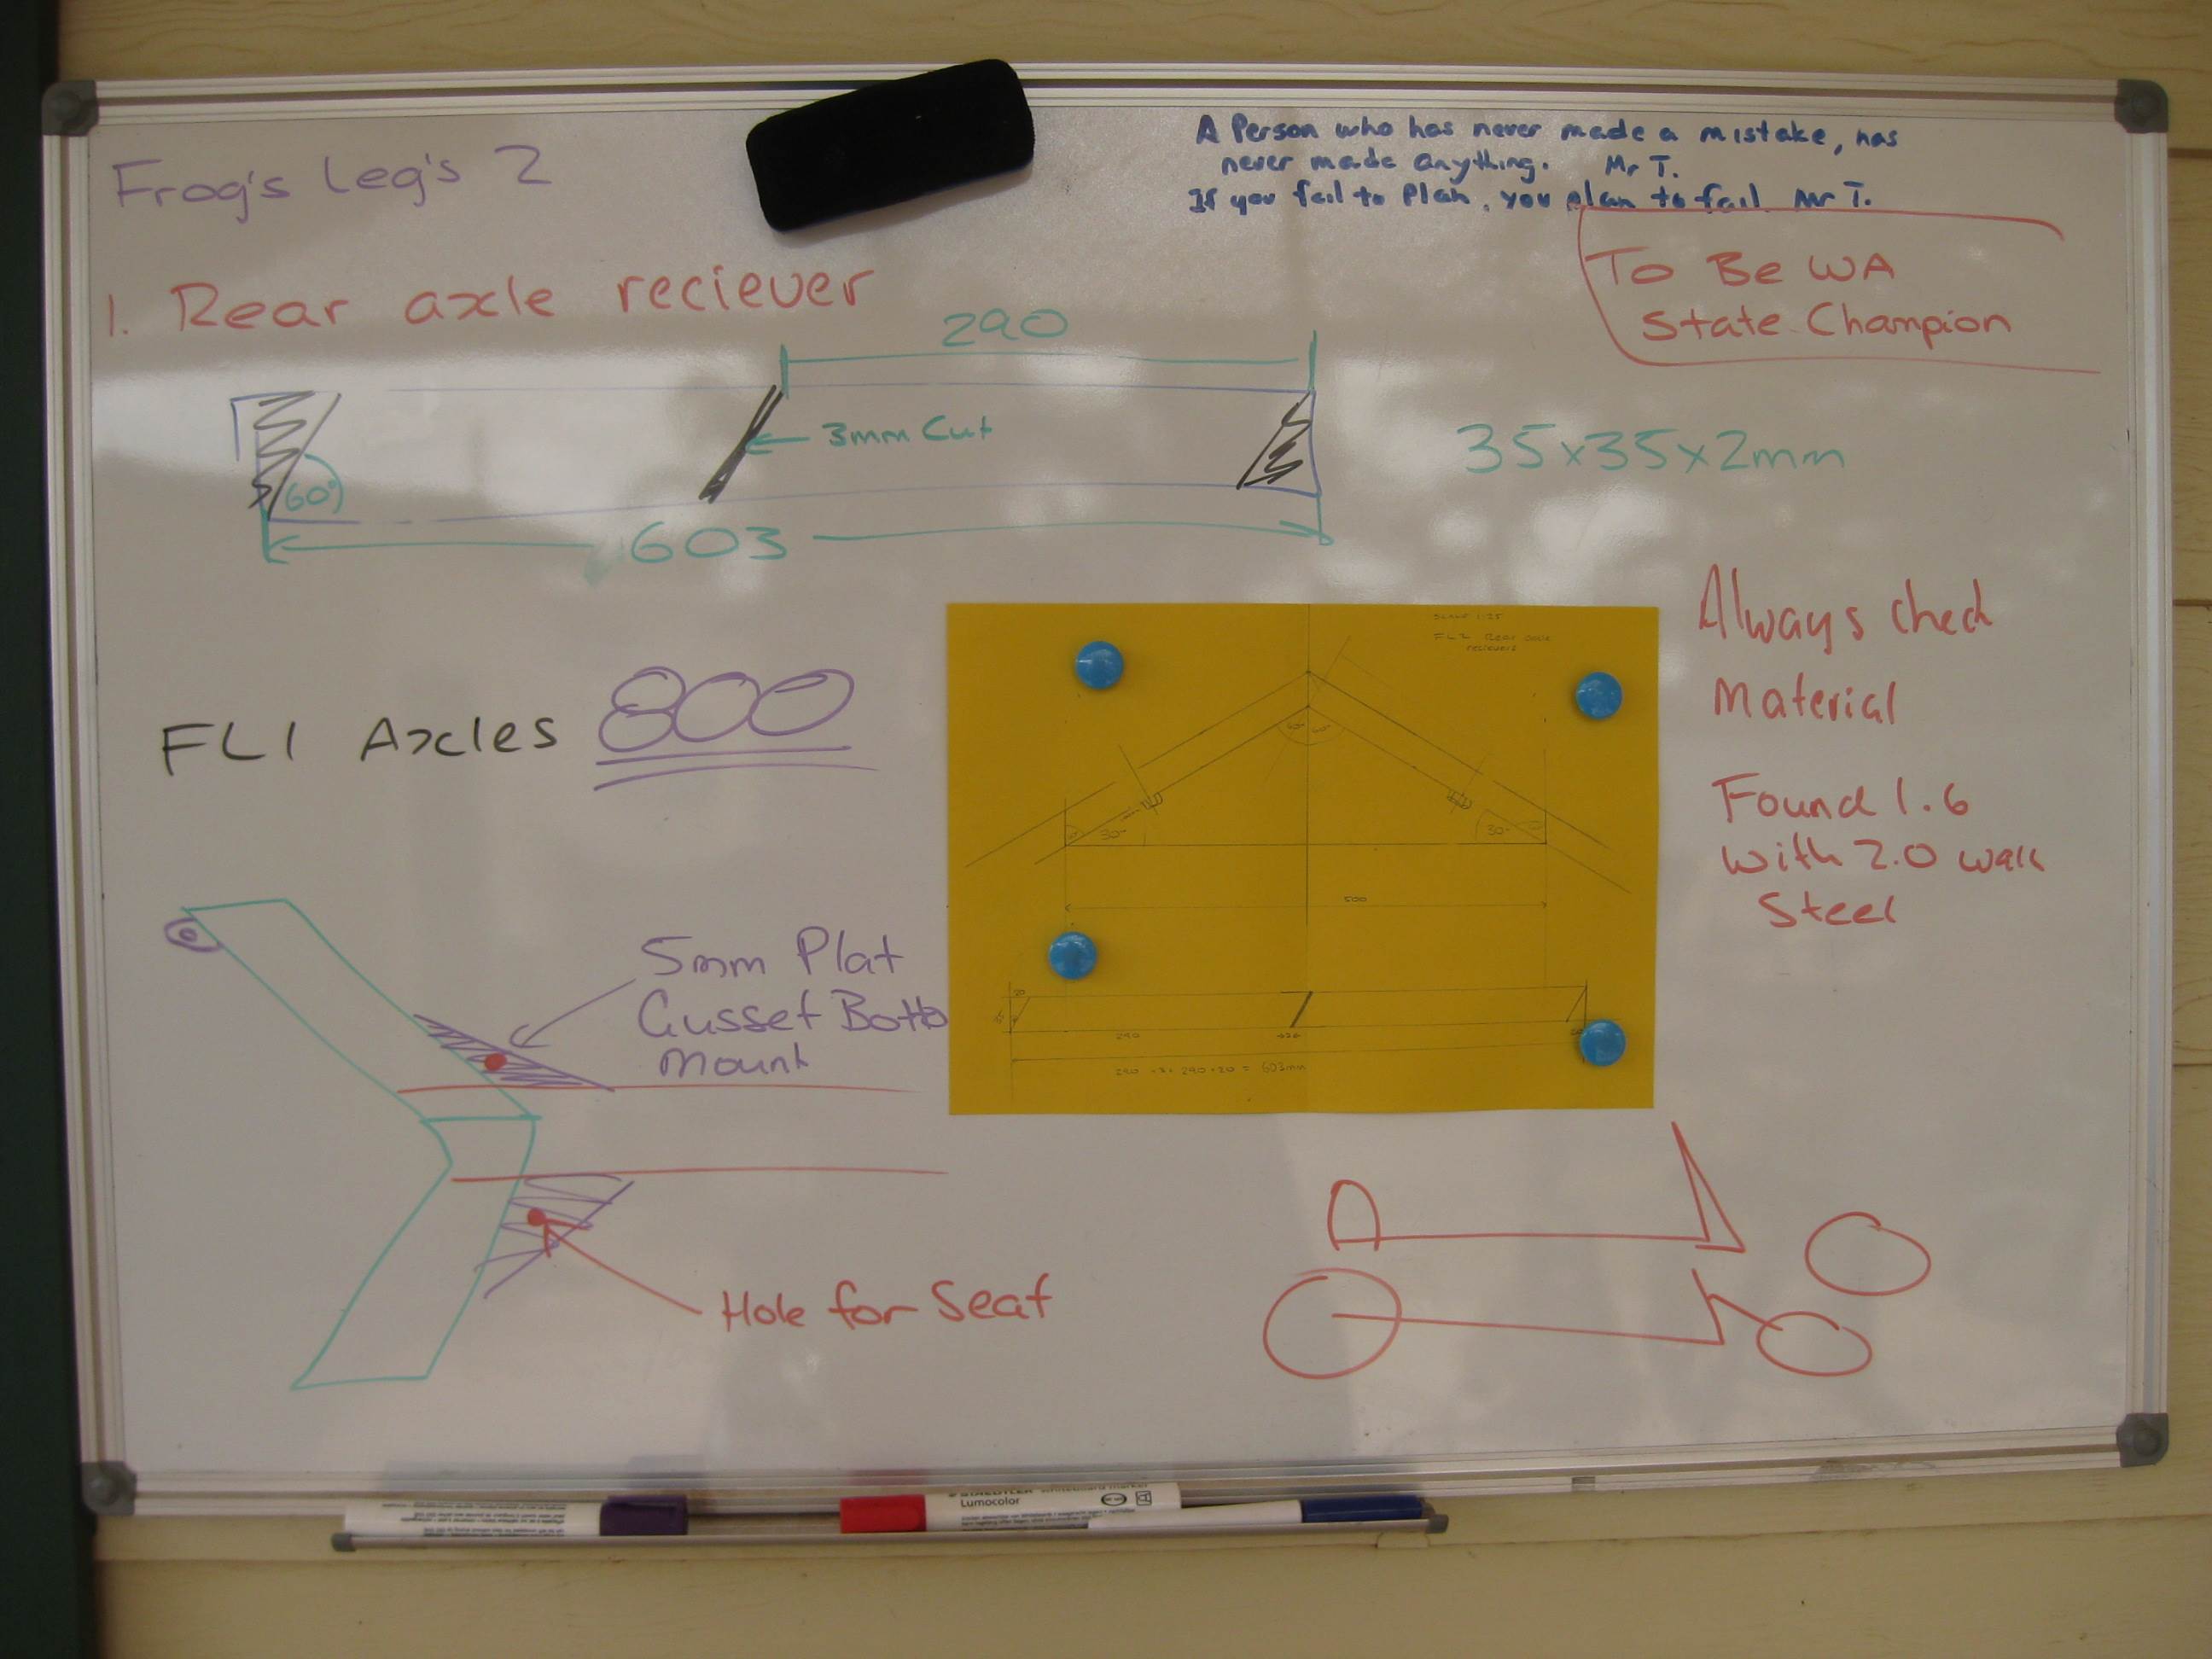 Frog's Leg's 2
A Person who has never made a mistake, has
never made anything. Mr T.
If you fail to Plan, you plan to fail Mr T.
To Be WA
State Champion
1. Rear axle reciever
290
3mm Cut
60°
603
35x35x2mm
Always check
Material
Found 1.6
with 2.0 wall
Steel
FL1 Axles 800
FL2 Rear axle
recievers
30°
30°
500
20
290
290 + 3 + 290 + 20 = 603mm
5mm Plat
Gusset Botto
Mount
Hole for Seat
STAEDTLER whiteboard marker
Lumocolor